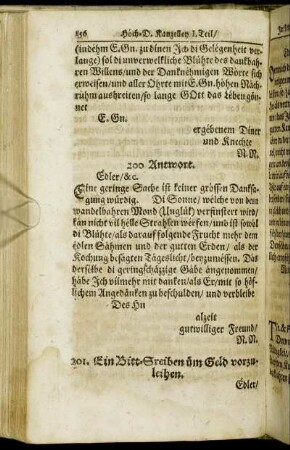 856 Hȯch-D. Kanzelley I. Teil/
(indėhm E.Gn. zu dinen Jch di Gelėgenheit ver-
lange) sol di unverwelkliche Blühte des dankbahren
Willens/und der Danknėhmigen Wörte sich
erweisen/und aller Ohrte mit E.Gn. höhen Näch-
ruhm ausbreiten/so lange GOtt das Leben gün-
net
E. Gn.
ergėbenem Diner
und Knechte
N. N.
200 Antwort.
Edler/&c.
Eine geringe Sache ist keiner grössen Danksa-
gung würdig. Di Sonne/ welche von dem
wandelbahren Mond (Unglük) verfinstert wird/
kan nicht vil hėlle Strahlen wėrfen/und ist sowol
di Blühte/als darauf folgende Frucht mehr dem
ėdlen Sahmen und der gutten Erden/ als der
Kochung besagten Tageslicht/beyzumėssen. Das
derselbe di geringschäzige Gabe angenommen/
habe Jch vilmehr mit danken/als Er/mit so hof-
lichem Angedänken zu beschulden/ und verbleibe
Des Hn
alzeit
gutwilliger Freund/
N. N.
201. Ein Bitt-Sreiben üm Geld vorzu-
leihen.
Edler/